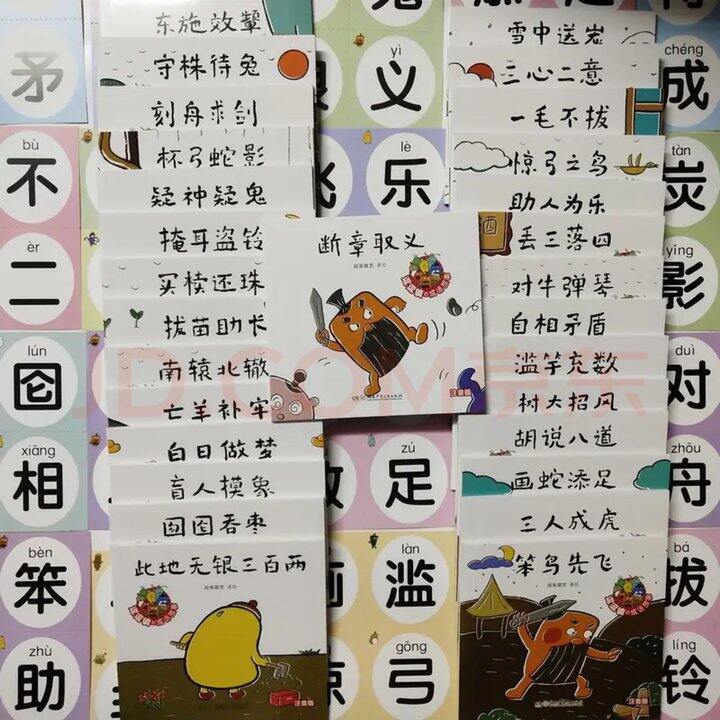 东施效颦
守株待兔
刻舟求剑
杯弓蛇影
疑神疑鬼
掩耳盗铃
买椟还珠
拔苗助长
南辕北辙
亡羊补牢
白日做梦
盲人摸象
囫囵吞枣
此地无银三百两
段张取艺 著绘
注音版
断章取义
段张取艺 著绘
注音版
雪中送炭
三心二意
一毛不拔
惊弓之鸟
助人为乐
丢三落四
对牛弹琴
自相矛盾
滥竽充数
树大招风
胡说八道
画蛇添足
三人成虎
笨鸟先飞
段张取艺 著绘
注音版
矛
bù
不
èr
二
lún
囵
xiāng
相
bèn
笨
zhù
助
yì
义
lè
乐
zú
足
làn
滥
gōng
弓
chéng
成
tàn
炭
yǐng
影
duì
对
zhōu
舟
bá
拔
líng
铃
JD.COM京东